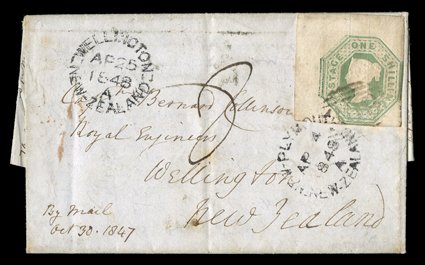 WELLINGTON
NEW ZEALAND
AP 25
1848
POSTAGE ONE SHILLING
Captn Bernard Collinson
Royal Engineers
Wellington
New Zealand
3
NEW-PLYMOUTH
NEW-ZEALAND
AP 4
1848
By Mail
Oct 30. 1847